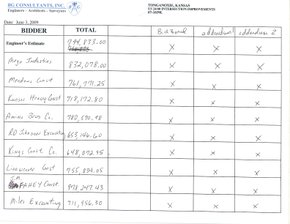 BG CONSULTANTS, INC.
Engineers - Architects - Surveyors
TONGANOXIE, KANSAS
INTERSECTION IMPROVEMENTS
Date: June 3, 2009
BIDDER TOTAL Bid Bond addendum 1 addendum 2
Engineer's Estimate 794,833.00 X X X
Mega Industries 832,078.00 X X X
Meadows Const 761,771.25 X X X
Kansas Heavy Const 718,172.80 X X X
Amino Bros Co. X X X
RD Johnson Excavating X X X
Kings Const Co 648,072.95 X X X
Linaweaver Const X X X
J.M. FAHEY Const 898,247.43 X X X
Miles Excavating 711,956.50 X X X